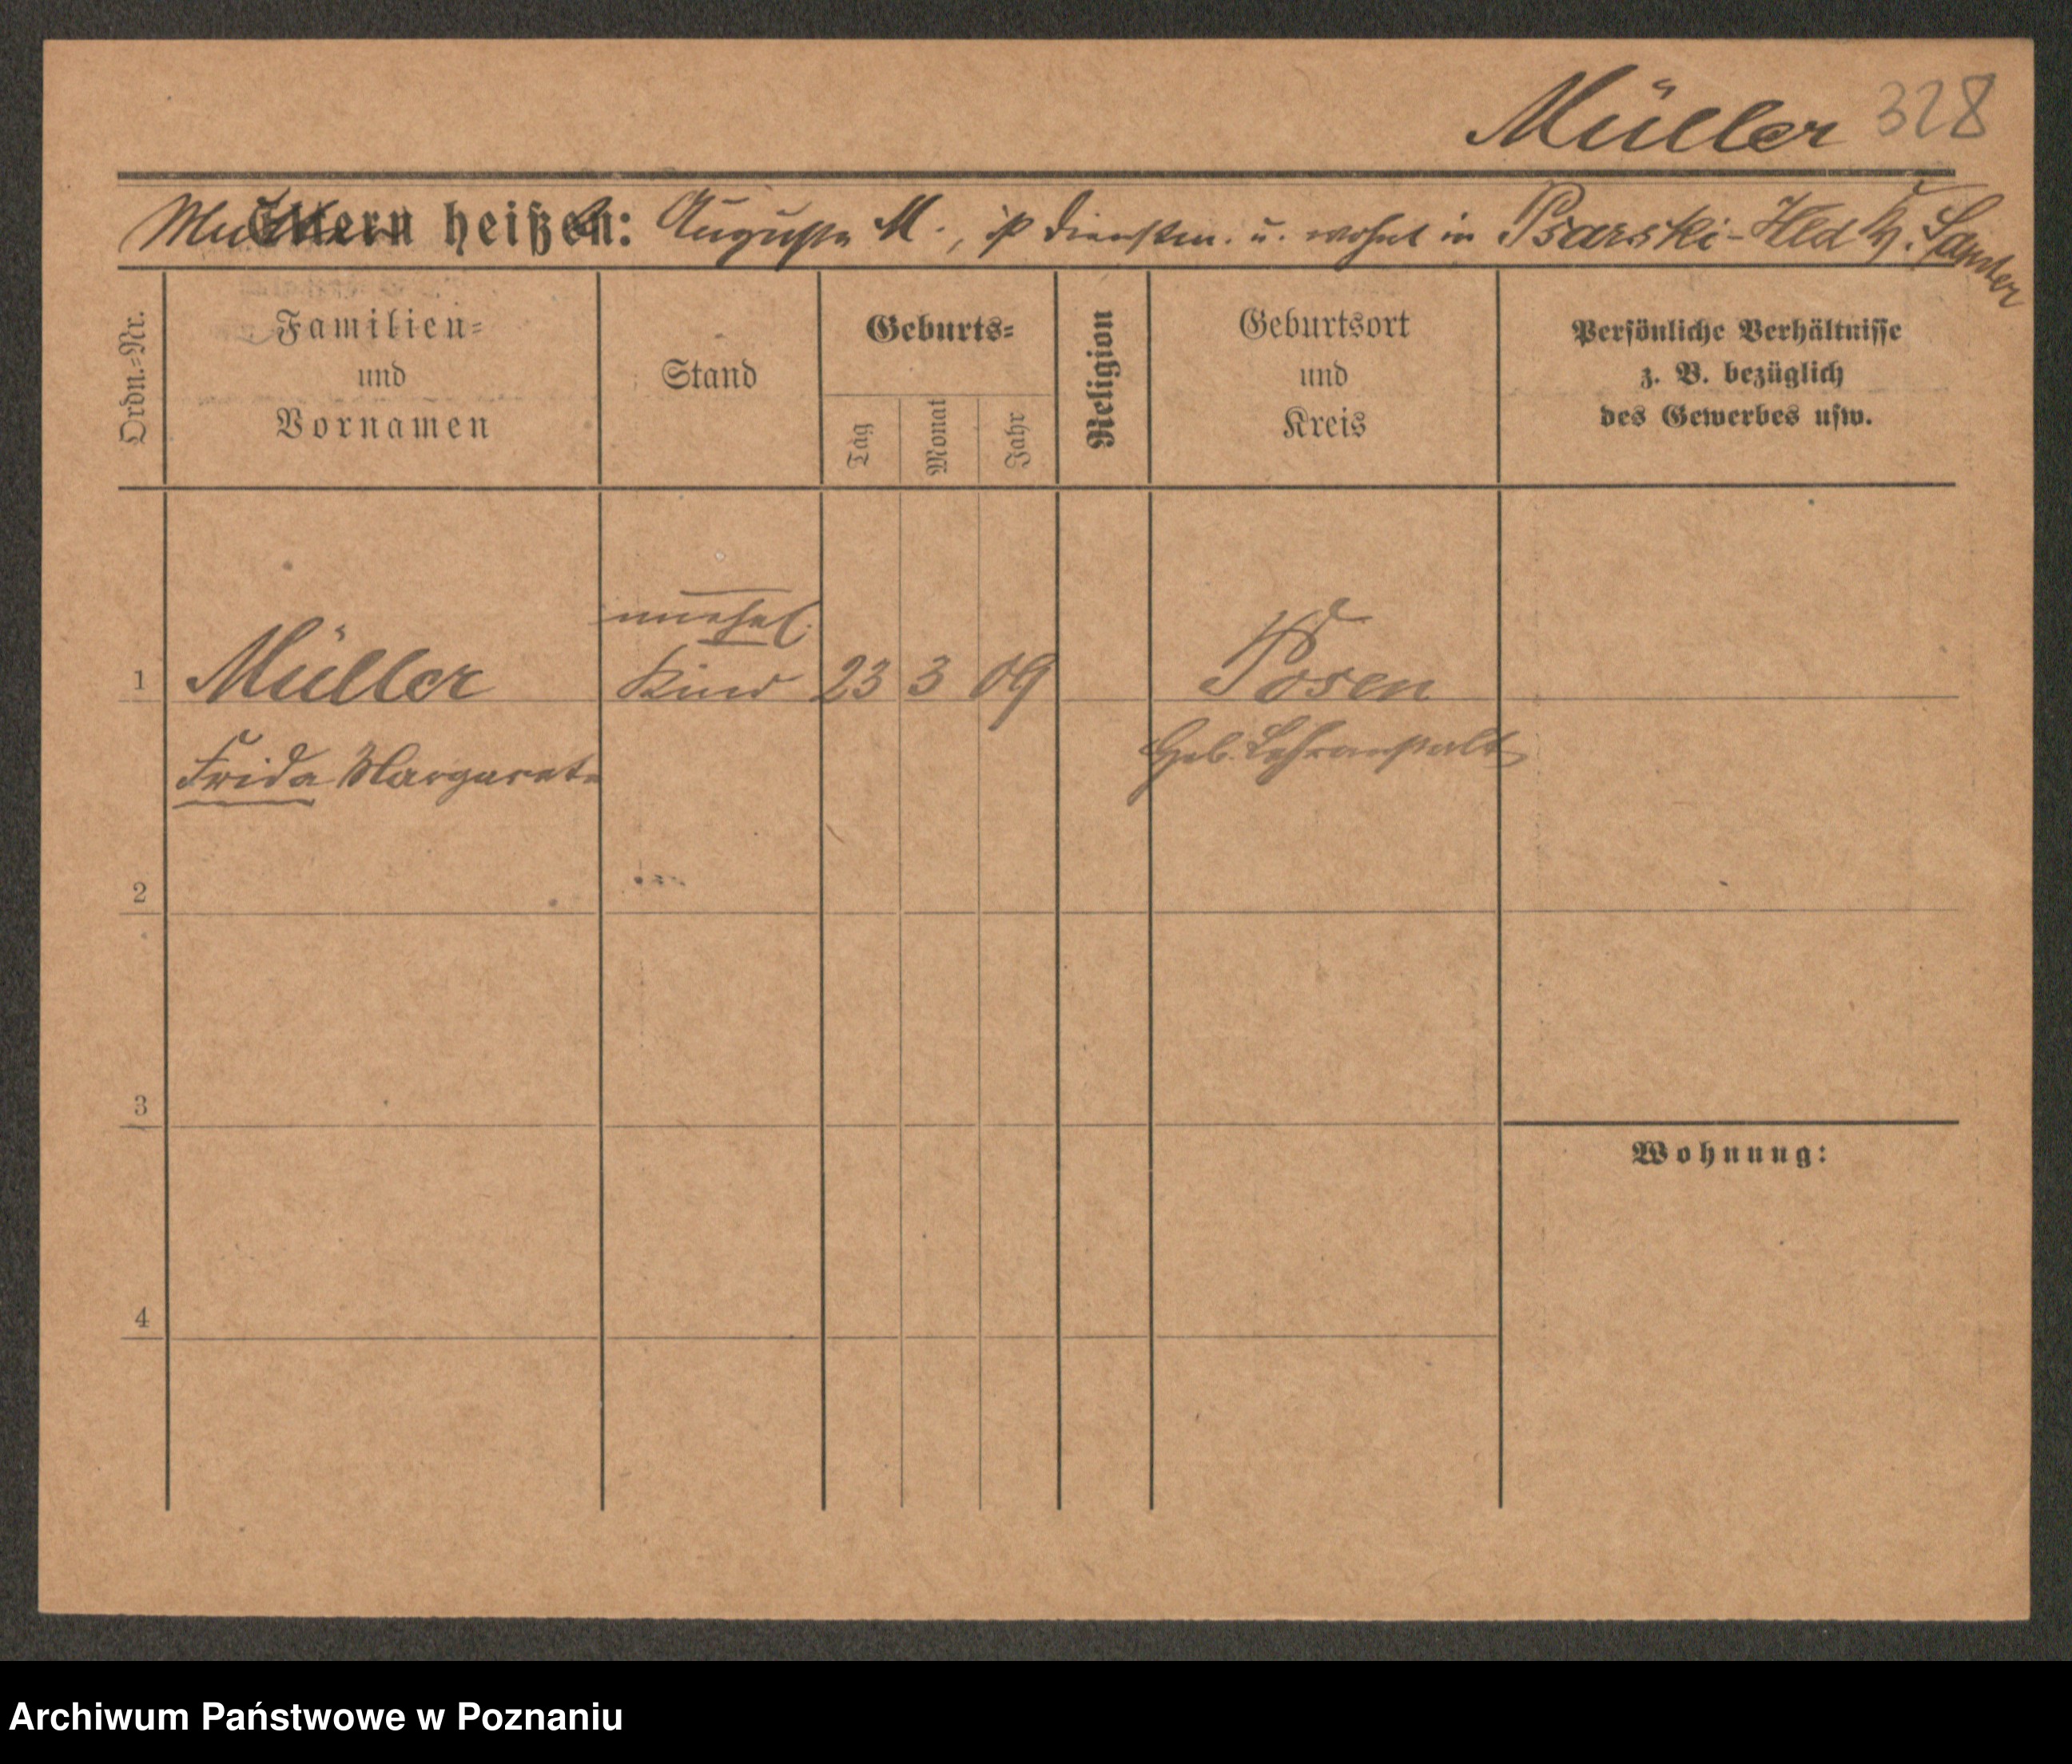 Müller 328
Mutter Eltern heißen: Auguste M., ist Dienstm. u. wohnt in Psarski-Hld Kr. Samter
Ordn.=Nr.
Familien=
und
Vornamen
Stand
Geburts=
Tag
Monat
Jahr
Religion
Geburtsort
und
Kreis
Persönliche Verhältnisse
z. B. bezüglich
des Gewerbes usw.
unehel.
1 Müller Kind 23 3 09 Posen
Frida Margarete Heb. Lehranstalt
2
3
Wohnung:
4
Archiwum Państwowe w Poznaniu